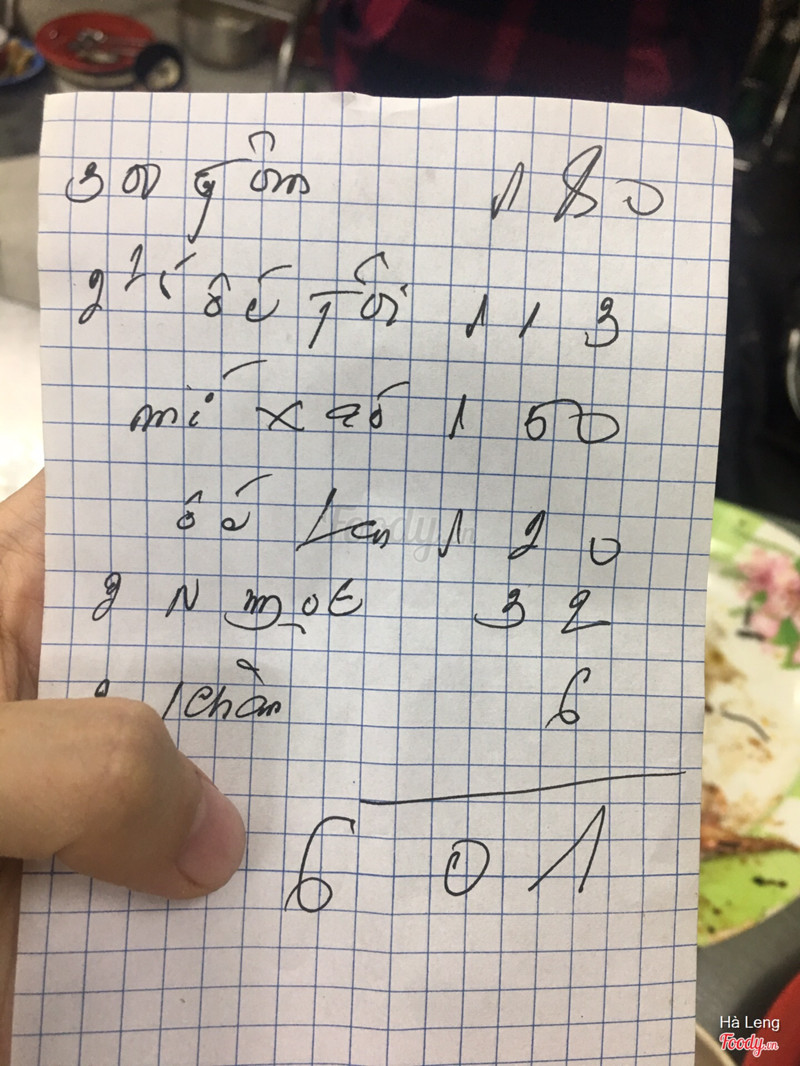 300 g tôm 180
2 ốc Tỏi 113
mì xào 150
ốc Len 120
2 N mọt 32
2 khăn 6
601
Foody.vn
Hà Leng
Foody.vn